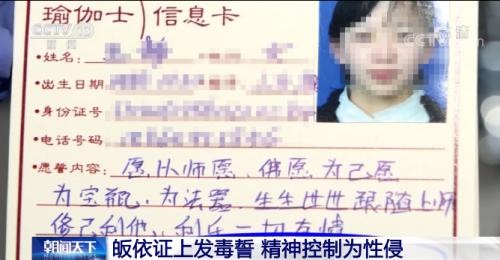 CCTV 13
新闻
瑜伽士 信息卡
CCTV 清
•姓名：
•出生日期
•身份证号
•电话号码
•愿誓内容：愿从师愿、佛愿为己愿
为宝瓶，为法器，生生世世跟随上师
修己利他，利乐一切有情
朝闻天下
皈依证上发毒誓 精神控制为性侵